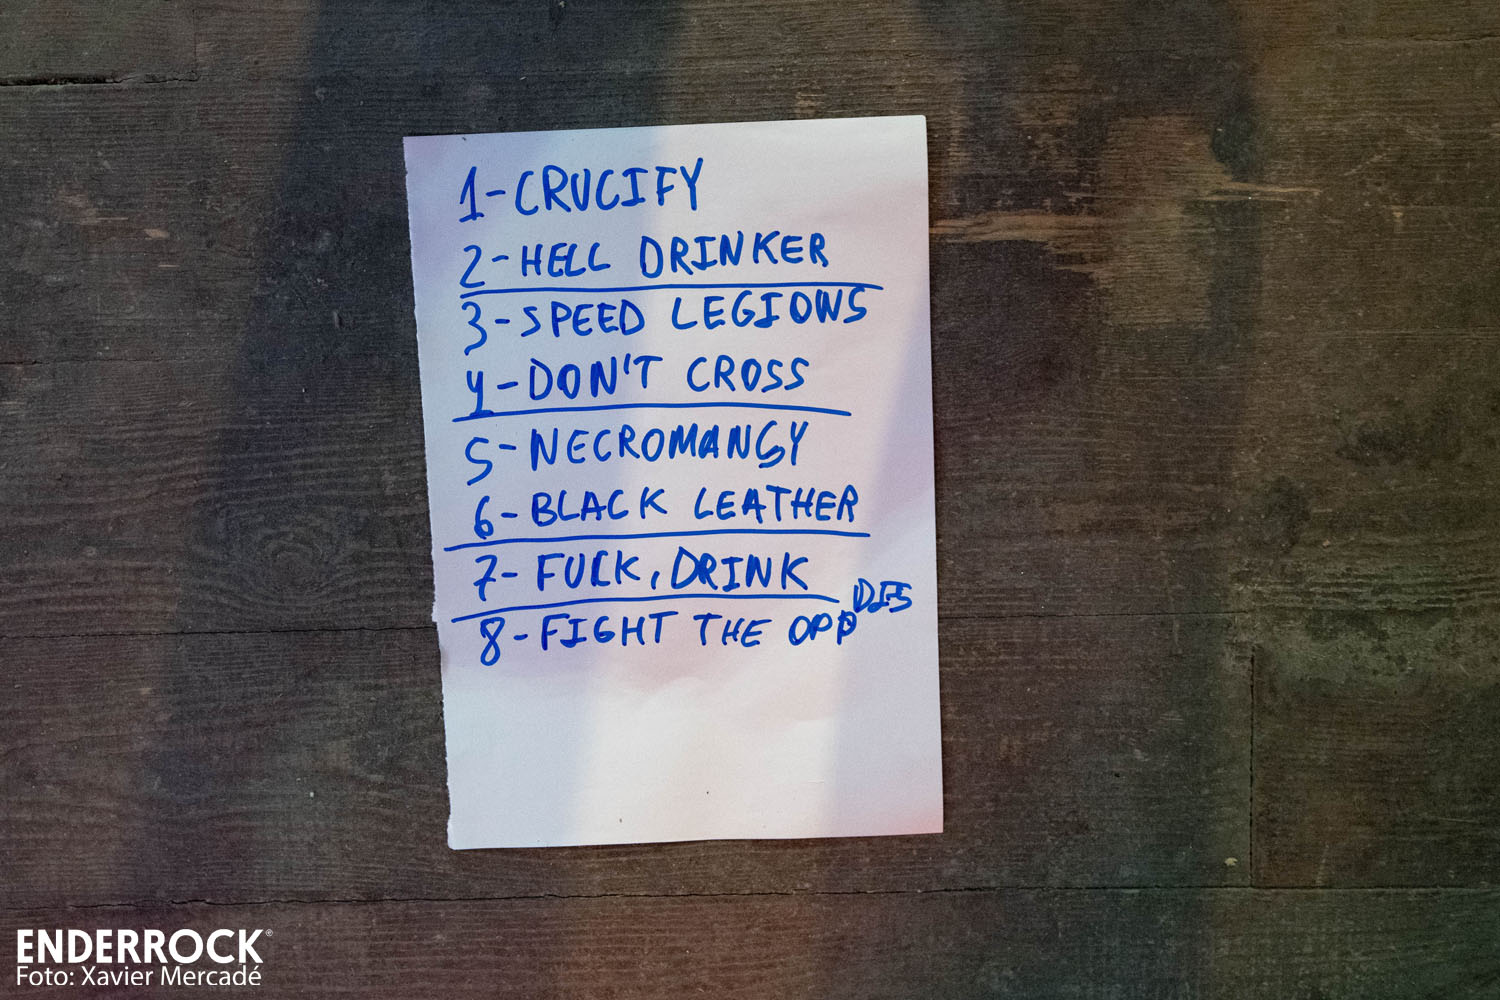 1-CRUCIFY
2-HELL DRINKER
3-SPEED LEGIONS
4-DON'T CROSS
5-NECROMANGY
6-BLACK LEATHER
7-FUCK, DRINK
8-FIGHT THE OPP
ENDERROCK®
Foto: Xavier Mercadé